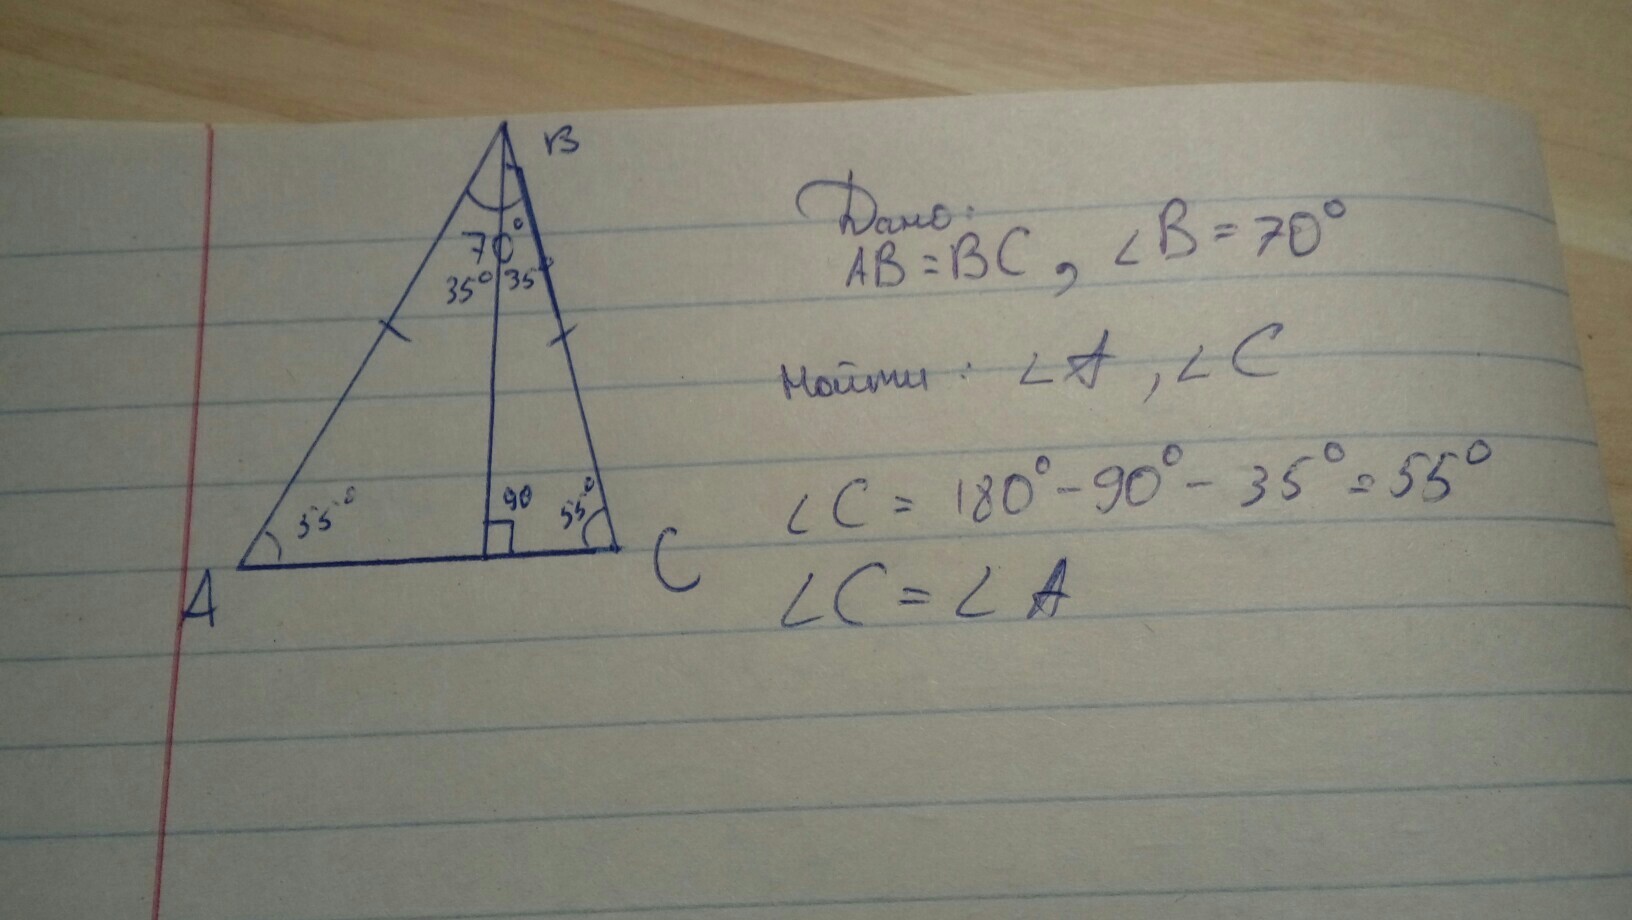 B
70°
35° 35°
55°
90
55°
A
C
Дано:
AB = BC, ∠B = 70°
Найти: ∠A, ∠C
∠C = 180° - 90° - 35° = 55°
∠C = ∠A